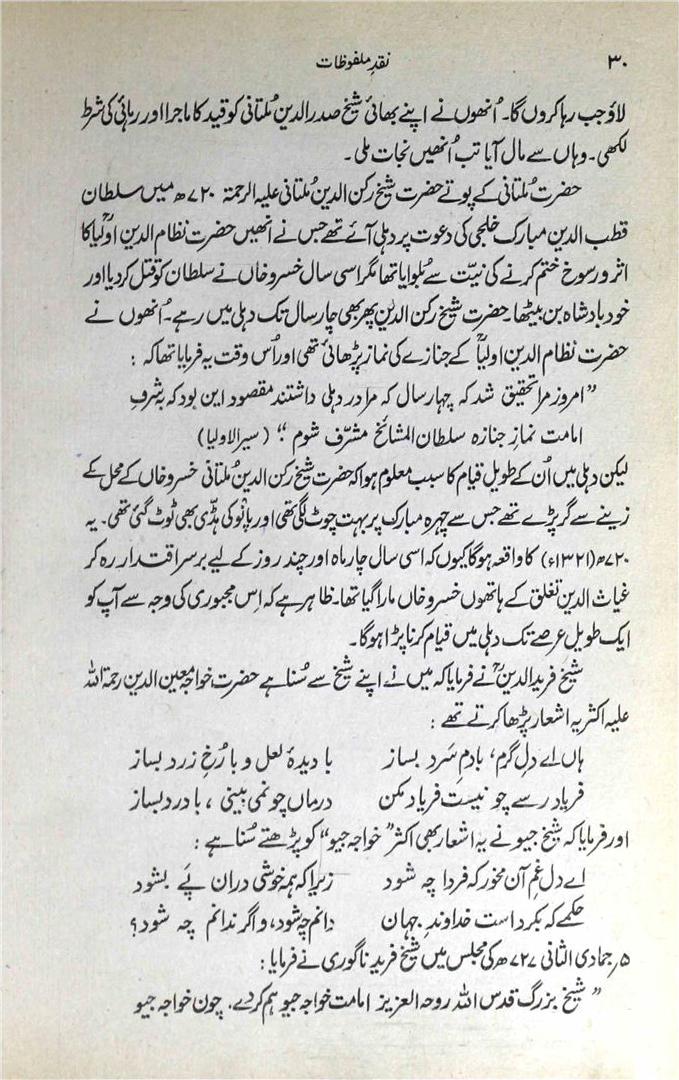 ۳۰
نقدِ ملفوظات
لاؤ جب رہا کروں گا۔ اُنھوں نے اپنے بھائی شیخ صدرالدین مُلتانی کو قید کا ماجرا اور رہائی کی شرط
لکھی۔ وہاں سے مال آیا تب اُنھیں نجات ملی۔
حضرت مُلتانی کے پوتے حضرت شیخ رکن الدین مُلتانی علیہ الرحمۃ ۷۲۰ھ میں سلطان
قطب الدین مبارک خلجی کی دعوت پر دہلی آئے تھے جس نے انھیں حضرت نظام الدین اولیاؒ کا
اثر و رسوخ ختم کرنے کی نیّت سے بُلوایا تھا مگر اسی سال خسرو خاں نے سلطان کو قتل کردیا اور
خود بادشاہ بن بیٹھا۔ حضرت شیخ رکن الدین پھر بھی چار سال تک دہلی میں رہے۔ اُنھوں نے
حضرت نظام الدین اولیاؒ کے جنازے کی نماز پڑھائی تھی اور اُس وقت یہ فرمایا تھا کہ :
”امروز مرا تحقیق شد کہ چہار سال کہ مرا در دہلی داشتند مقصود این بود کہ بہ شرفِ
امامت نمازِ جنازہ سلطان المشائخ مشرّف شوم“۔ (سیرالاولیا)
لیکن دہلی میں اُن کے طویل قیام کا سبب معلوم ہوا کہ حضرت شیخ رکن الدین مُلتانی خسرو خاں کے محل کے
زینے سے گر پڑے تھے جس سے چہرہ مبارک پر بہت چوٹ لگی تھی اور پانْو کی ہڈّی بھی ٹوٹ گئی تھی۔ یہ
۷۲۰ھ (۱۳۲۱ء) کا واقعہ ہوگا کیوں کہ اسی سال چار ماہ اور چند روز کے لیے برسرِ اقتدار رہ کر
غیاث الدین تغلق کے ہاتھوں خسرو خاں مارا گیا تھا۔ ظاہر ہے کہ اِس مجبوری کی وجہ سے آپ کو
ایک طویل عرصے تک دہلی میں قیام کرنا پڑا ہوگا۔
شیخ فریدالدینؒ نے فرمایا کہ میں نے اپنے شیخ سے سُنا ہے حضرت خواجہ معین الدین رحمۃ اللہ
علیہ اکثر یہ اشعار پڑھا کرتے تھے :
ہاں اے دلِ گرم، بادمِ سَرد بساز با دیدۂ لعل و با رُخِ زرد بساز
فریاد رسے چو نیست فریاد مکن درماں چو نمی بینی، با درد بساز
اور فرمایا کہ شیخ جیو نے یہ اشعار بھی اکثر ”خواجہ جیو“ کو پڑھتے سُنا ہے :
اے دل غمِ آن مخور کہ فردا چہ شود زیرا کہ ہمہ خوشی دران پَے بشود
حکمے کہ بکرد است خداوندِ جہان دانم چہ شود، و اگر ندانم چہ شود؟
۵؍ جمادی الثانی ۷۲۷ھ کی مجلس میں شیخ فرید ناگوری نے فرمایا :
”شیخ بزرگ قدس اللہ روحہ العزیز امامت خواجہ جیو ہم کردے۔ چون خواجہ جیو